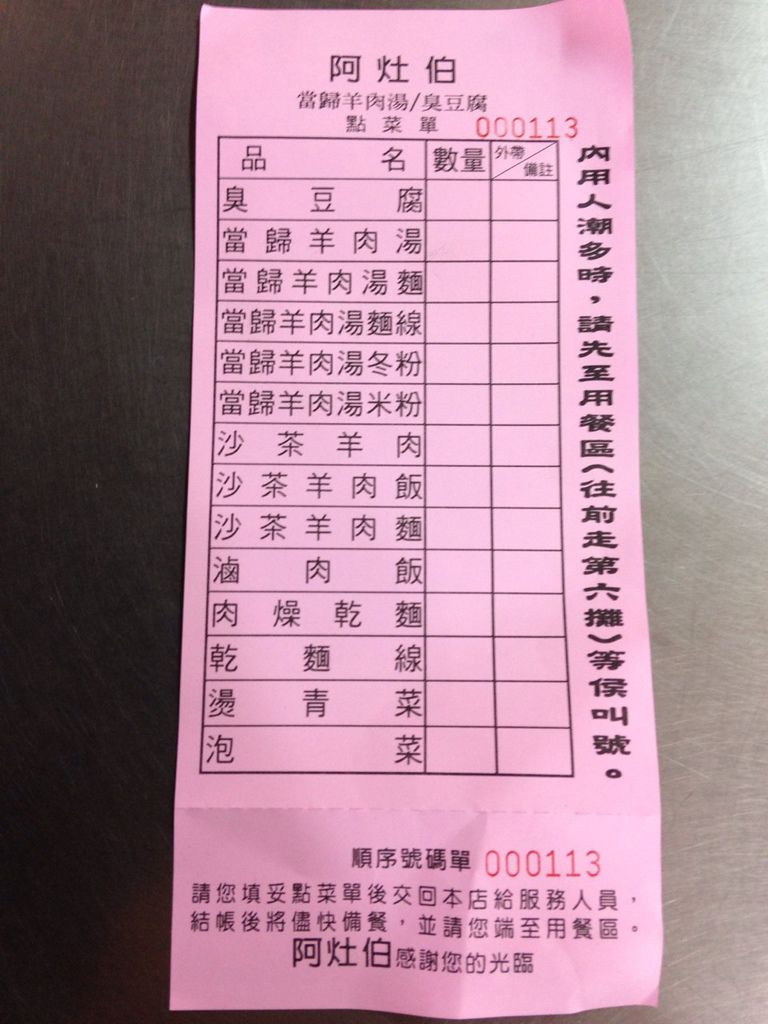 阿灶伯
當歸羊肉湯/臭豆腐
點菜單 000113
品名 數量 外帶/備註
臭豆腐
當歸羊肉湯
當歸羊肉湯麵
當歸羊肉湯麵線
當歸羊肉湯冬粉
當歸羊肉湯米粉
沙茶羊肉
沙茶羊肉飯
沙茶羊肉麵
滷肉飯
肉燥乾麵
乾麵線
燙青菜
泡菜
內用人潮多時，請先至用餐區(往前走第六攤)等侯叫號。
順序號碼單 000113
請您填妥點菜單後交回本店給服務人員，
結帳後將儘快備餐，並請您端至用餐區。
阿灶伯感謝您的光臨